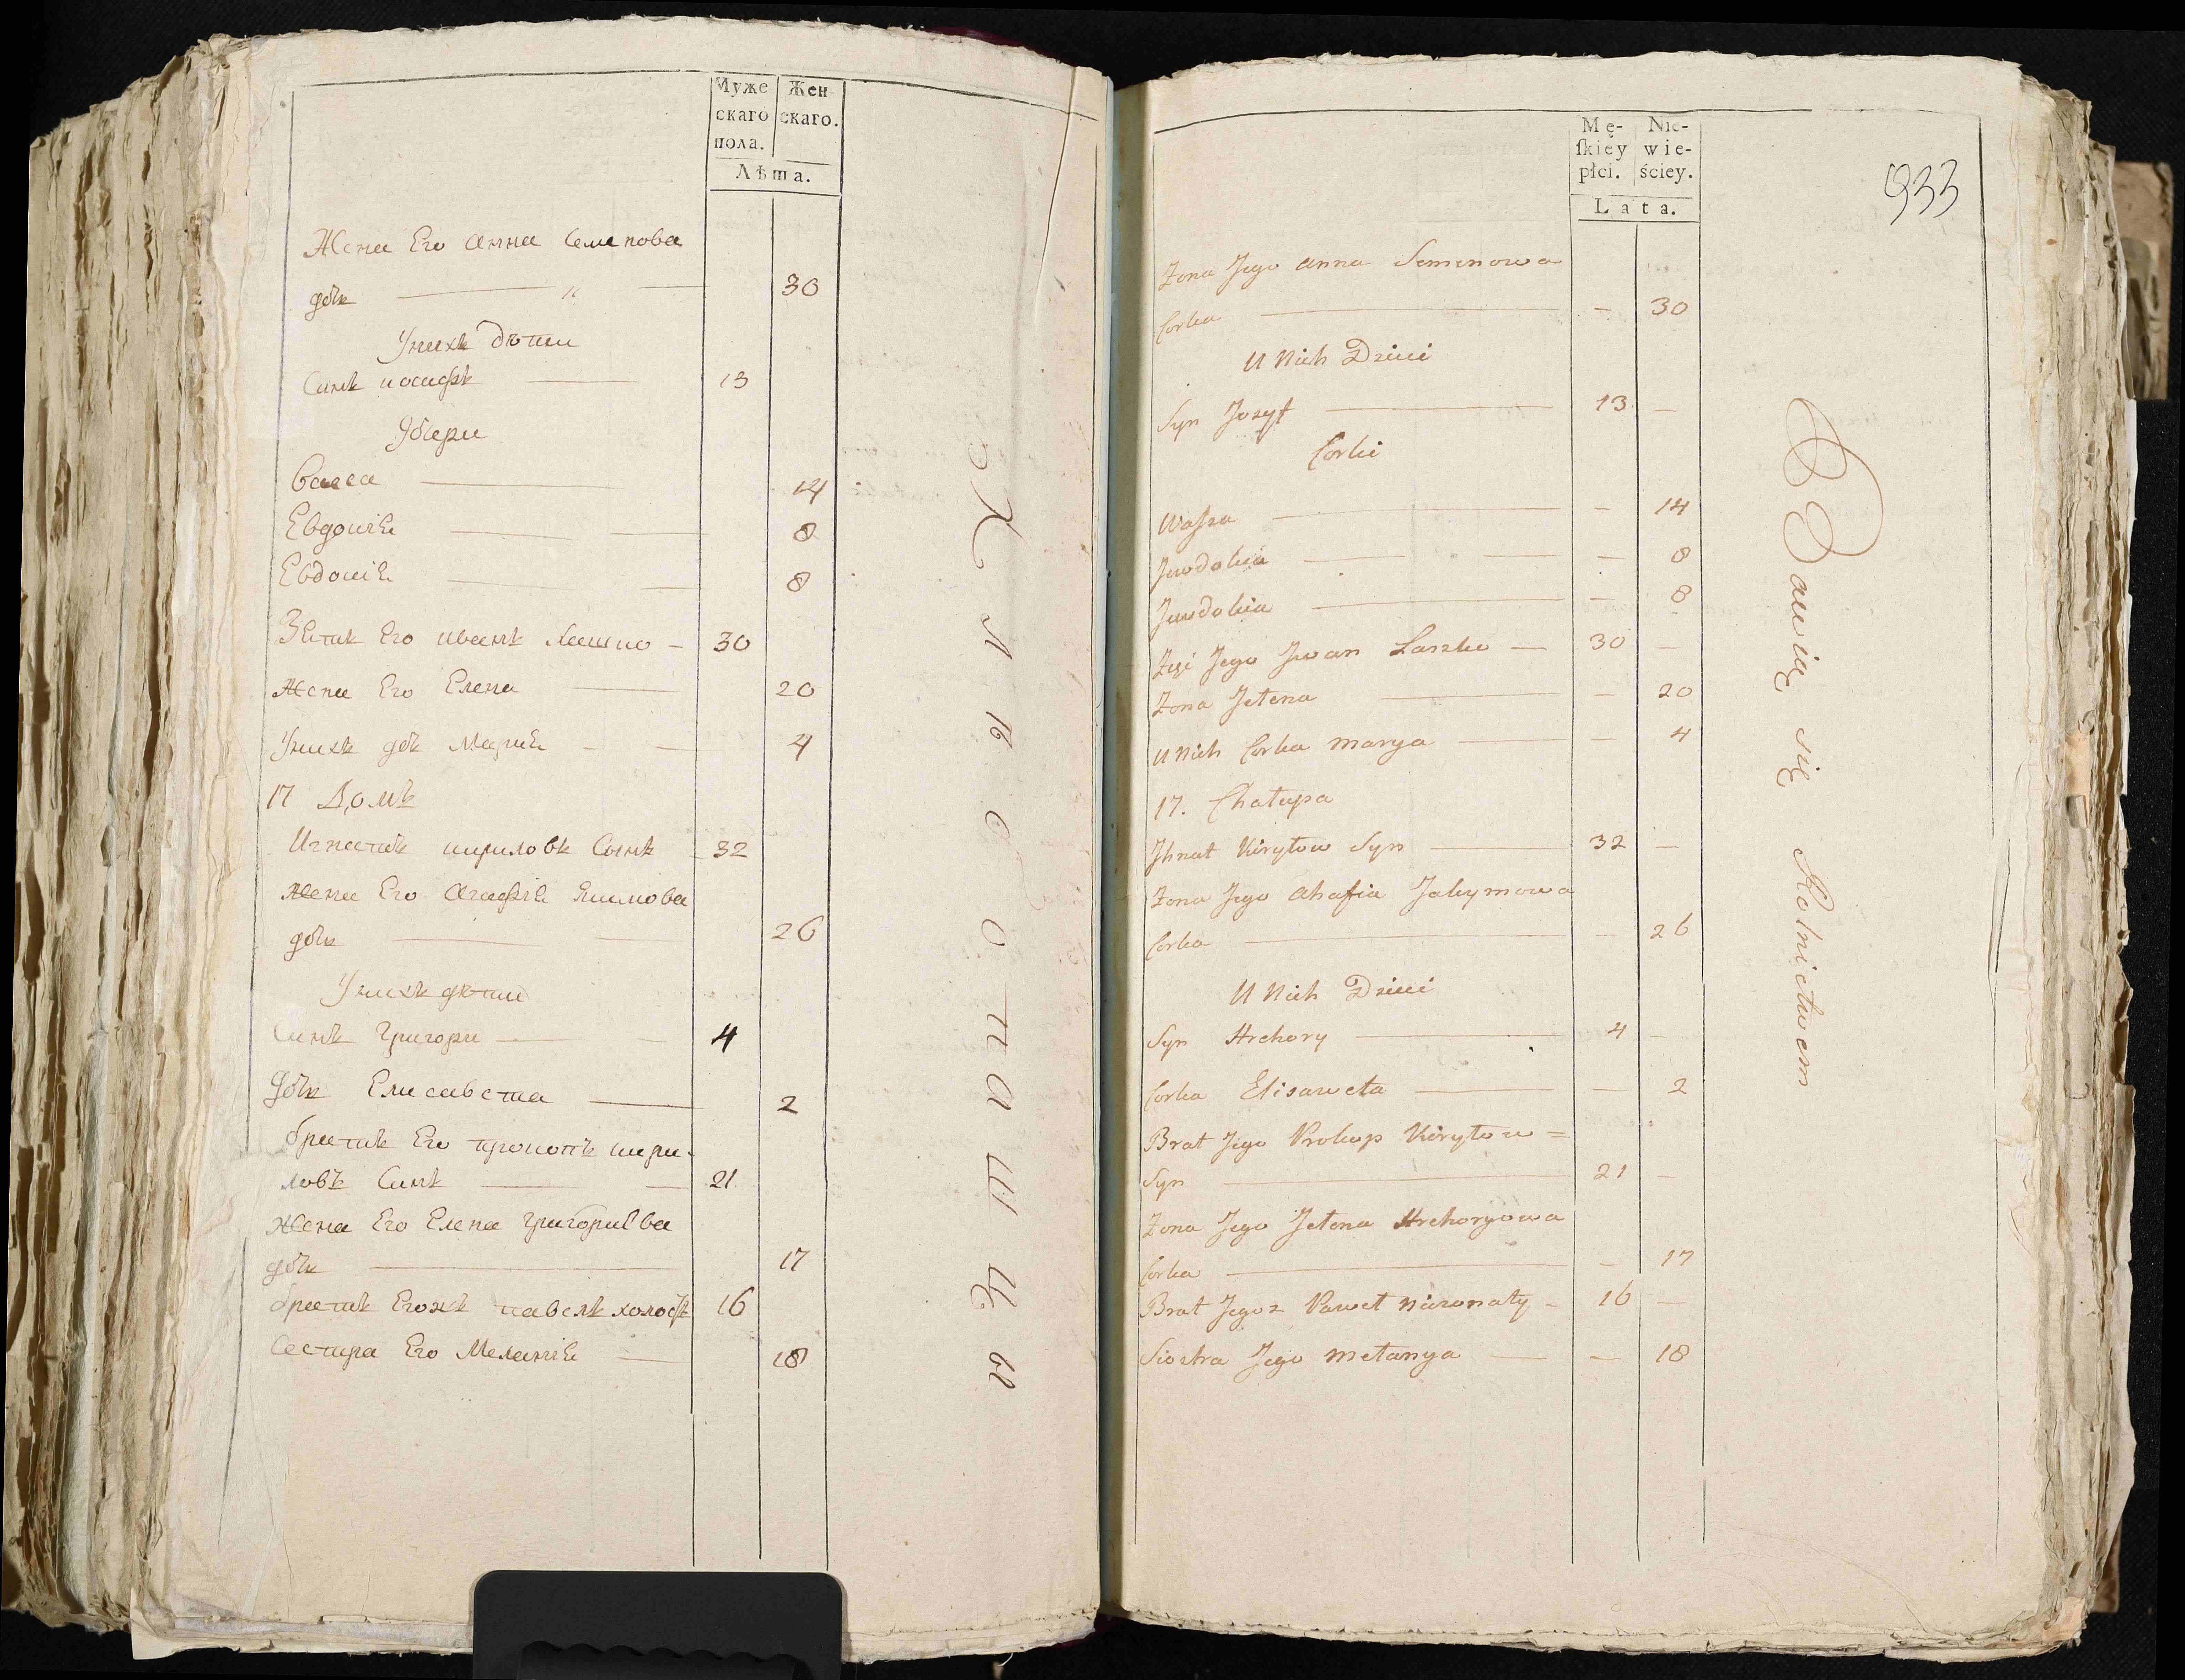 Муже
скаго
пола.
Жен
скаго.
Лѣта.
Жена Его Анна Семенова
дочь 30
У нихъ дѣти
Синъ иосифъ 13
Дочери
Васса 14
Евдокія 8
Евдокія 8
Зять Его иванъ Лашко 30
Жена Его Елена 20
У нихъ дочь Марія 4
17 Домъ
Игнатъ кириловъ Сынъ 32
Жена Его Агафія Якимова
дочь 26
У нихъ дѣти
Синъ Григори 4
Дочь Елисавета 2
братъ Его прокопъ кири-
ловъ Синъ 21
Жена Его Елена Григориева
дочь 17
братъ Егожъ павелъ холостъ 16
Сестра Его Меланія 18
Хлѣбопашцы
Mę-
ſkiey
płci.
Nie-
wie-
ściey.
Lata.
933
Zona Jego Anna Semenowa
Corka — 30
U Nich Dzieci
Syn Jozyf 13 —
Corki
Waſsa — 14
Jewdokia — 8
Jewdokia — 8
Zięć Jego Jwan Laszko — 30 —
Zona Jełena — 20
U Nich Corka Marya — 4
17. Chałupa
Jhnat Kiryłow Syn 32 —
Zona Jego Ahafia Jakymowa
Corka — 26
U Nich Dzieci
Syn Hrehory 4 —
Corka Elisaweta — 2
Brat Jego Prokop Kiryłow =
Syn 21 —
Zona Jego Jełena Hrehoryowa
Corka — 17
Brat Jegoz Paweł Niezonaty 16 —
Siostra Jego Mełanya — 18
Bawią się Rolnictwem